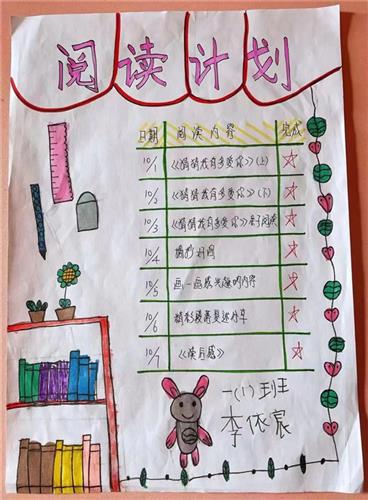 阅读计划
日期 阅读内容 完成
10/1 《猜猜我有多爱你》(上) ☆
10/2 《猜猜我有多爱你》(下) ☆
10/3 《猜猜我有多爱你》亲子阅读 ☆
10/4 摘抄好词 ☆
10/5 画一画感兴趣的内容 ☆
10/6 精彩段落复述分享 ☆
10/7 《读后感》 ☆
一(1)班
李依宸